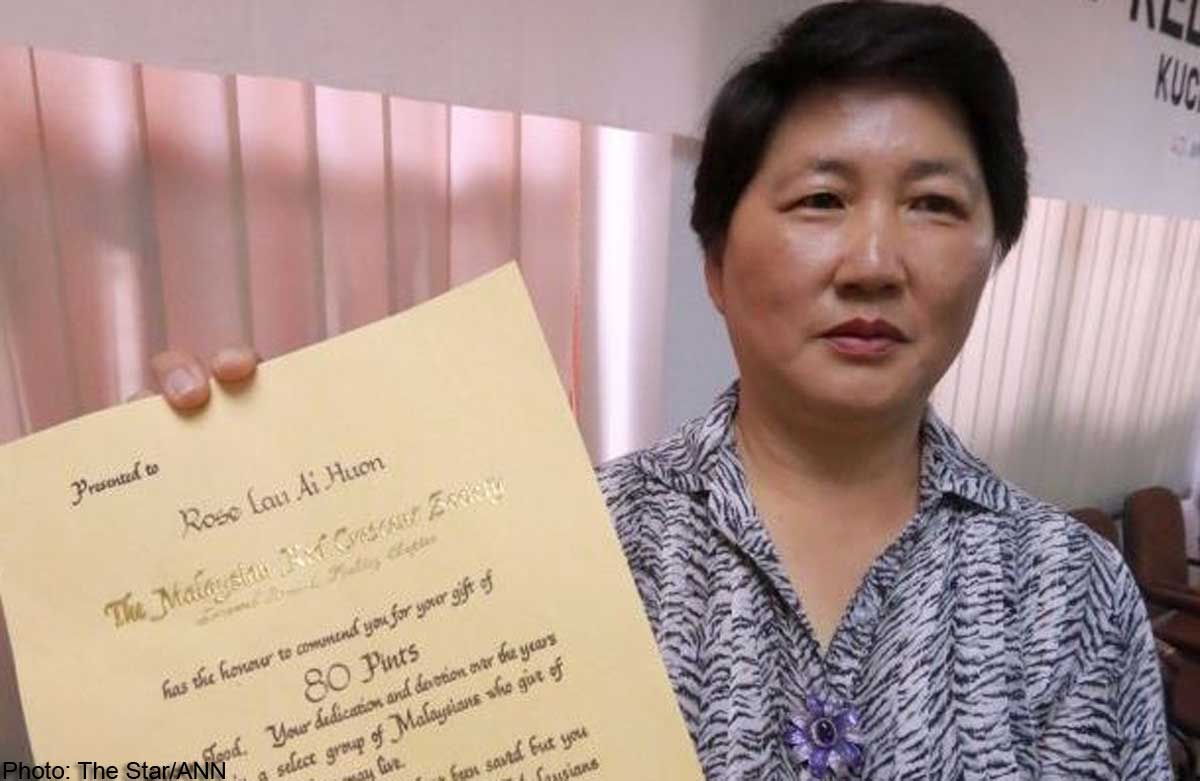 KUC
Presented to
Rose Lau Ai Huon
The Malaysian Red Crescent Society
has the honour to commend you for your gift of
80 Pints
Your dedication and devotion over the years
a select group of Malaysians who give of
may live.
been saved but you
Photo: The Star/ANN